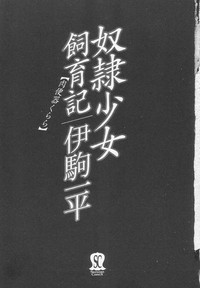 奴隷少女
飼育記
【肉便器くらら】
伊駒一平
SC